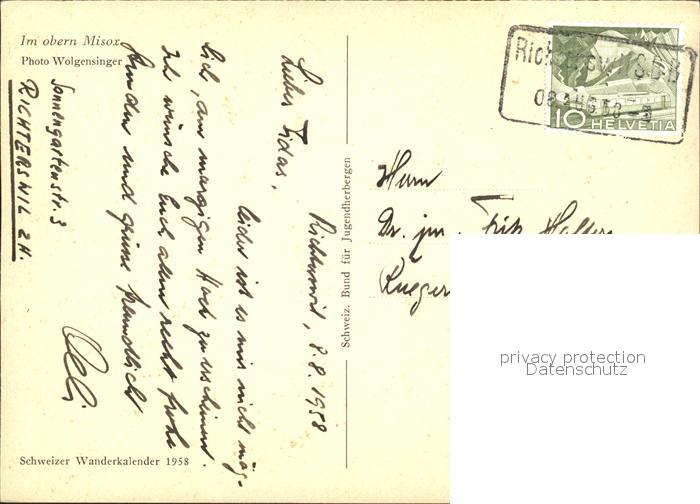 Im obern Misox
Photo Wolgensinger
Sonnengartenstr. 3
RICHTERSWIL ZH.
Richterswil, 8.8.1958
Lieber Fidas,
leider ist es mir nicht mög-
lich, am morgigen Hock zu erscheinen.
Ich wünsche Euch allen recht frohe
Stunden und grüsse freundlich
Schweizer Wanderkalender 1958
Schweiz. Bund für Jugendherbergen
Richterswil SBB
08. AUG 58
10 HELVETIA
Herrn
Dr. jur. Fritz Haller
Rueger
privacy protection
Datenschutz